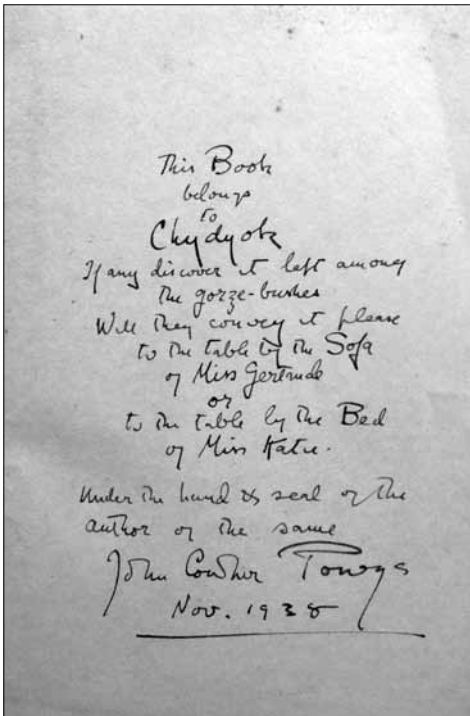 This Book
belongs
to
Chydyok
If any discover it left among
the gorze-bushes
Will they convey it please
to the table by the Sofa
of Miss Gertrude
or
to the table by the Bed
of Miss Katie.
Under the hand & seal of the
author of the same
John Cowper Powys
Nov. 1938